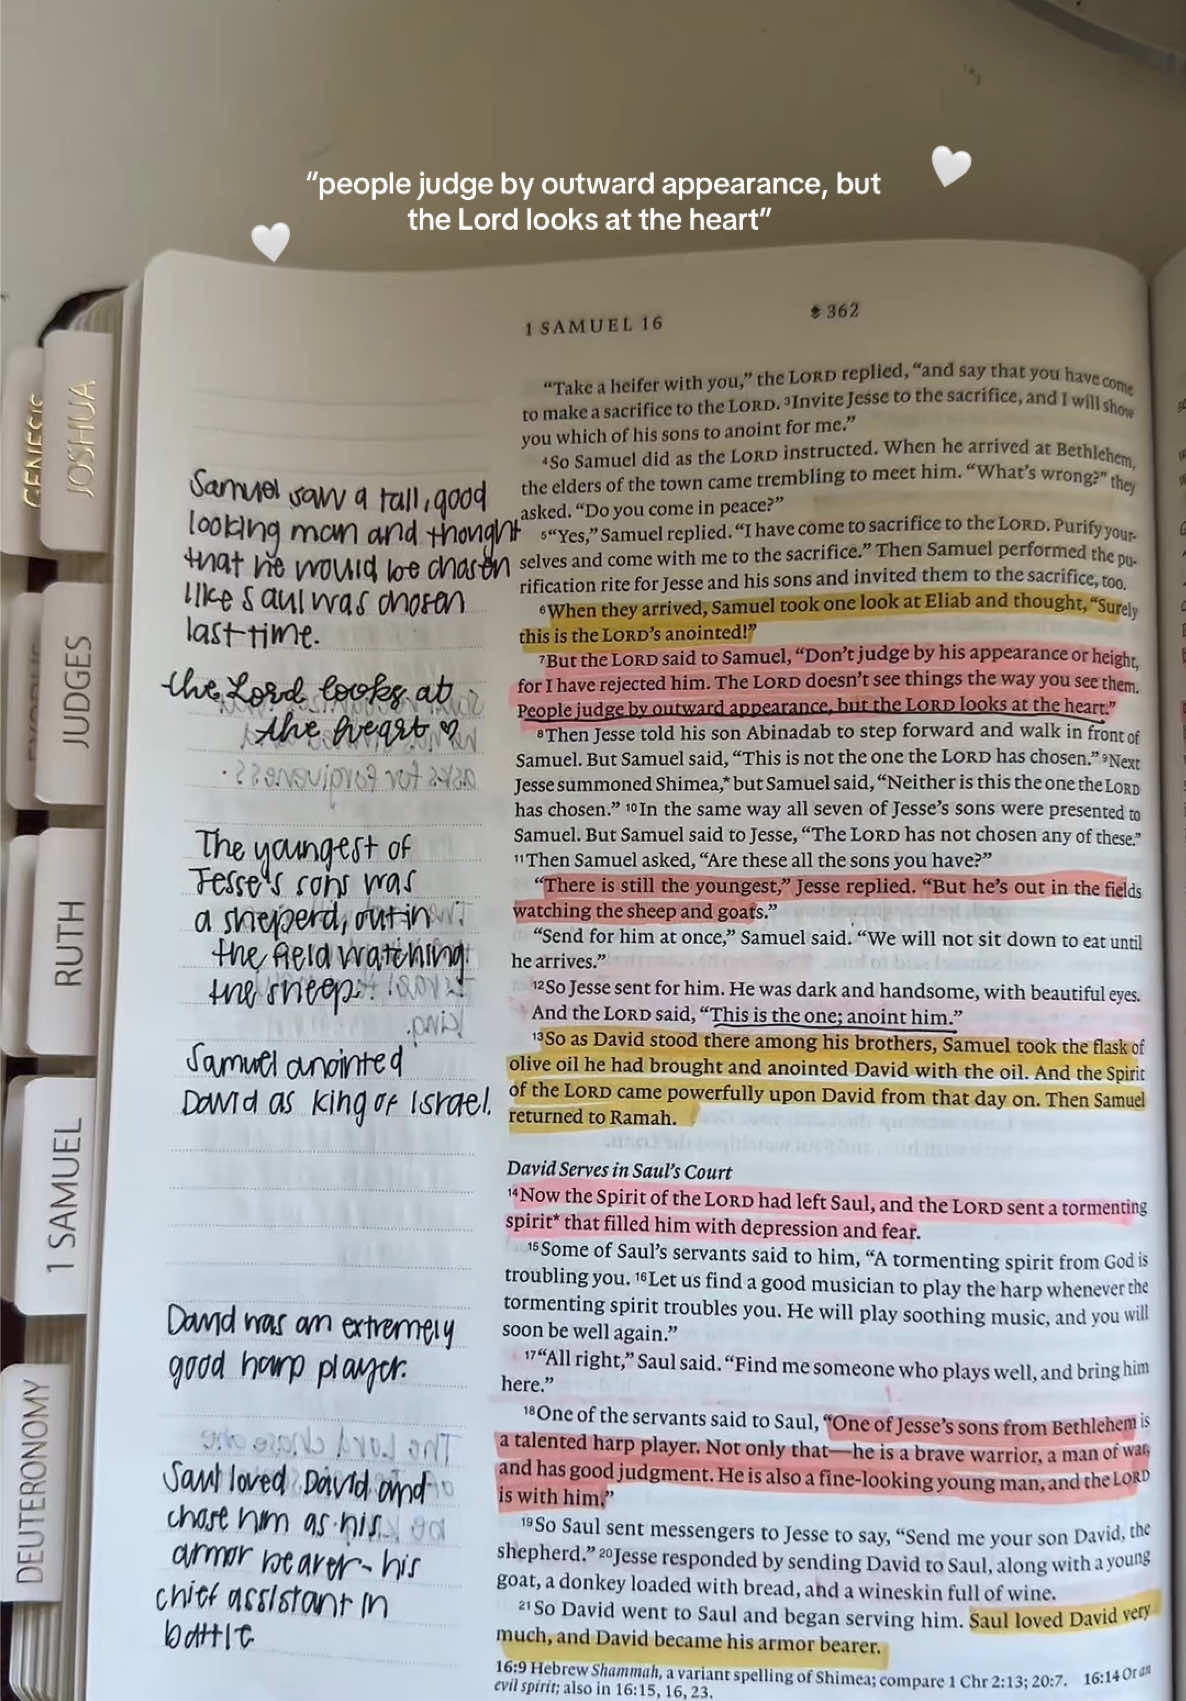 “people judge by outward appearance, but
the Lord looks at the heart”
1 SAMUEL 16
362
“Take a heifer with you,” the LORD replied, “and say that you have come
to make a sacrifice to the LORD. ³Invite Jesse to the sacrifice, and I will show
you which of his sons to anoint for me.”
⁴So Samuel did as the LORD instructed. When he arrived at Bethlehem,
the elders of the town came trembling to meet him. “What’s wrong?” they
asked. “Do you come in peace?”
⁵“Yes,” Samuel replied. “I have come to sacrifice to the LORD. Purify your-
selves and come with me to the sacrifice.” Then Samuel performed the pu-
rification rite for Jesse and his sons and invited them to the sacrifice, too.
⁶When they arrived, Samuel took one look at Eliab and thought, “Surely
this is the LORD’s anointed!”
⁷But the LORD said to Samuel, “Don’t judge by his appearance or height,
for I have rejected him. The LORD doesn’t see things the way you see them.
People judge by outward appearance, but the LORD looks at the heart.”
⁸Then Jesse told his son Abinadab to step forward and walk in front of
Samuel. But Samuel said, “This is not the one the LORD has chosen.” ⁹Next
Jesse summoned Shimea,* but Samuel said, “Neither is this the one the LORD
has chosen.” ¹⁰In the same way all seven of Jesse’s sons were presented to
Samuel. But Samuel said to Jesse, “The LORD has not chosen any of these.”
¹¹Then Samuel asked, “Are these all the sons you have?”
“There is still the youngest,” Jesse replied. “But he’s out in the fields
watching the sheep and goats.”
“Send for him at once,” Samuel said. “We will not sit down to eat until
he arrives.”
¹²So Jesse sent for him. He was dark and handsome, with beautiful eyes.
And the LORD said, “This is the one; anoint him.”
¹³So as David stood there among his brothers, Samuel took the flask of
olive oil he had brought and anointed David with the oil. And the Spirit
of the LORD came powerfully upon David from that day on. Then Samuel
returned to Ramah.
David Serves in Saul’s Court
¹⁴Now the Spirit of the LORD had left Saul, and the LORD sent a tormenting
spirit* that filled him with depression and fear.
¹⁵Some of Saul’s servants said to him, “A tormenting spirit from God is
troubling you. ¹⁶Let us find a good musician to play the harp whenever the
tormenting spirit troubles you. He will play soothing music, and you will
soon be well again.”
¹⁷“All right,” Saul said. “Find me someone who plays well, and bring him
here.”
¹⁸One of the servants said to Saul, “One of Jesse’s sons from Bethlehem is
a talented harp player. Not only that—he is a brave warrior, a man of war,
and has good judgment. He is also a fine-looking young man, and the LORD
is with him.”
¹⁹So Saul sent messengers to Jesse to say, “Send me your son David, the
shepherd.” ²⁰Jesse responded by sending David to Saul, along with a young
goat, a donkey loaded with bread, and a wineskin full of wine.
²¹So David went to Saul and began serving him. Saul loved David very
much, and David became his armor bearer.
16:9 Hebrew Shammah, a variant spelling of Shimea; compare 1 Chr 2:13; 20:7. 16:14 Or an
evil spirit; also in 16:15, 16, 23.
Samuel saw a tall, good
looking man and thought
that he would be chosen
like Saul was chosen
last time.
the Lord looks at
the heart ♡
The youngest of
Jesse's sons was
a sheperd, out in
the field watching
the sheep.
Samuel anointed
David as king of Israel.
David was an extremely
good harp player.
Saul loved David and
chose him as his
armor bearer - his
chief assistant in
battle
GENESIS
JOSHUA
JUDGES
RUTH
1 SAMUEL
DEUTERONOMY